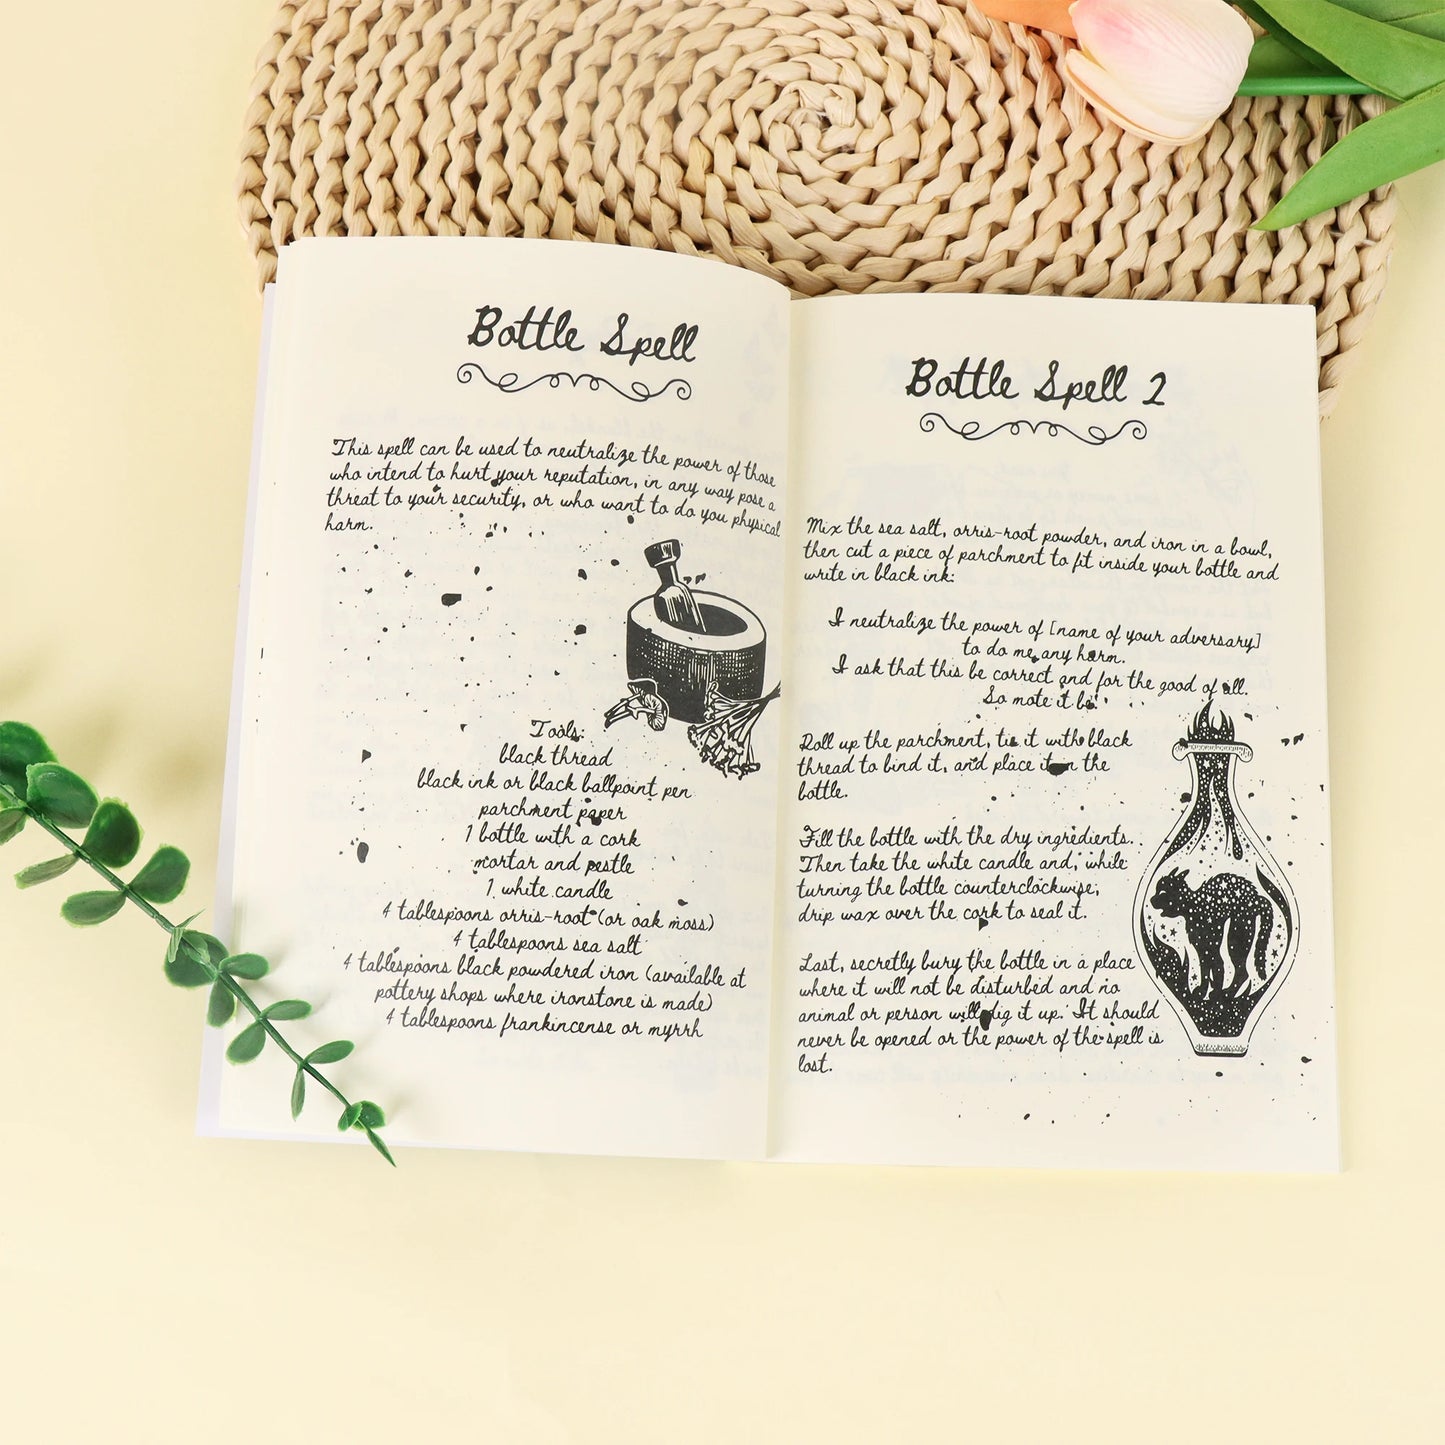 Bottle Spell
This spell can be used to neutralize the power of those
who intend to hurt your reputation, in any way pose a
threat to your security, or who want to do you physical
harm.
Tools:
black thread
black ink or black ballpoint pen
parchment paper
1 bottle with a cork
mortar and pestle
1 white candle
4 tablespoons orris-root (or oak moss)
4 tablespoons sea salt
4 tablespoons black powdered iron (available at
pottery shops where ironstone is made)
4 tablespoons frankincense or myrrh
Bottle Spell 2
Mix the sea salt, orris-root powder, and iron in a bowl,
then cut a piece of parchment to fit inside your bottle and
write in black ink:
I neutralize the power of [name of your adversary]
to do me any harm.
I ask that this be correct and for the good of all.
So mote it be!
Roll up the parchment, tie it with black
thread to bind it, and place it in the
bottle.
Fill the bottle with the dry ingredients.
Then take the white candle and, while
turning the bottle counterclockwise,
drip wax over the cork to seal it.
Last, secretly bury the bottle in a place
where it will not be disturbed and no
animal or person will dig it up. It should
never be opened or the power of the spell is
lost.